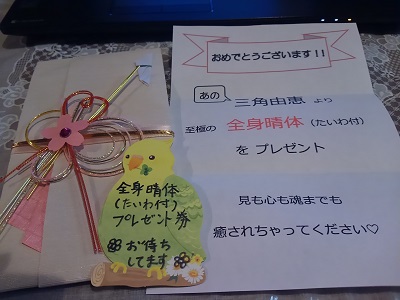 おめでとうございます!!
あの
三角由恵 より
至極の 全身晴体 (たいわ付)
を プレゼント
見も心も魂までも
癒されちゃってください♡
全身晴体
(たいわ付)
プレゼント券
お待ち
してます